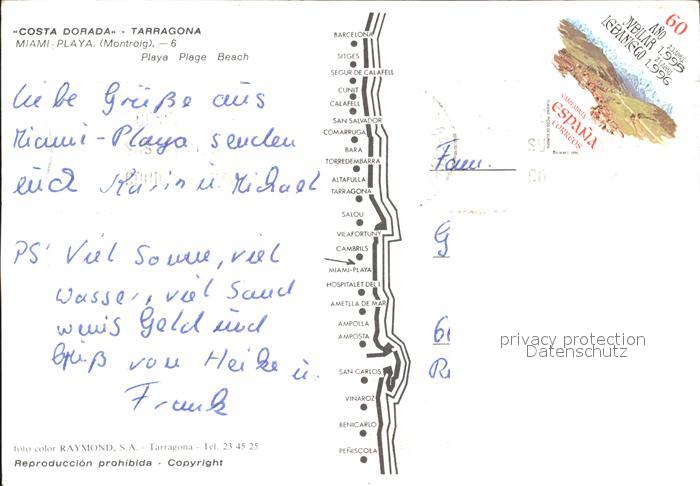 "COSTA DORADA" - TARRAGONA
MIAMI-PLAYA. (Montroig). — 6
Playa Plage Beach
liebe Grüße aus
Miami-Playa senden
euch Karin u. Michael
PS: Viel Sonne, viel
Wasser, viel Sand
wenig Geld und
Gruß von Heike u.
Frank
foto color RAYMOND, S.A. - Tarragona - Tel. 23 45 25
Reproducción prohibida - Copyright
BARCELONA
SITGES
SEGUR DE CALAFELL
CUNIT
CALAFELL
SAN SALVADOR
COMARRUGA
BARA
TORREDEMBARRA
ALTAFULLA
TARRAGONA
SALOU
VILAFORTUNY
CAMBRILS
MIAMI-PLAYA
HOSPITALET DEL I.
AMETLLA DE MAR
AMPOLLA
AMPOSTA
SAN CARLOS
VINAROZ
BENICARLO
PEÑISCOLA
60
AÑO
JUBILAR
LEBANIEGO
1.995
1.996
CANTABRIA
ESPAÑA
CORREOS
Fam.
G
privacy protection
Datenschutz